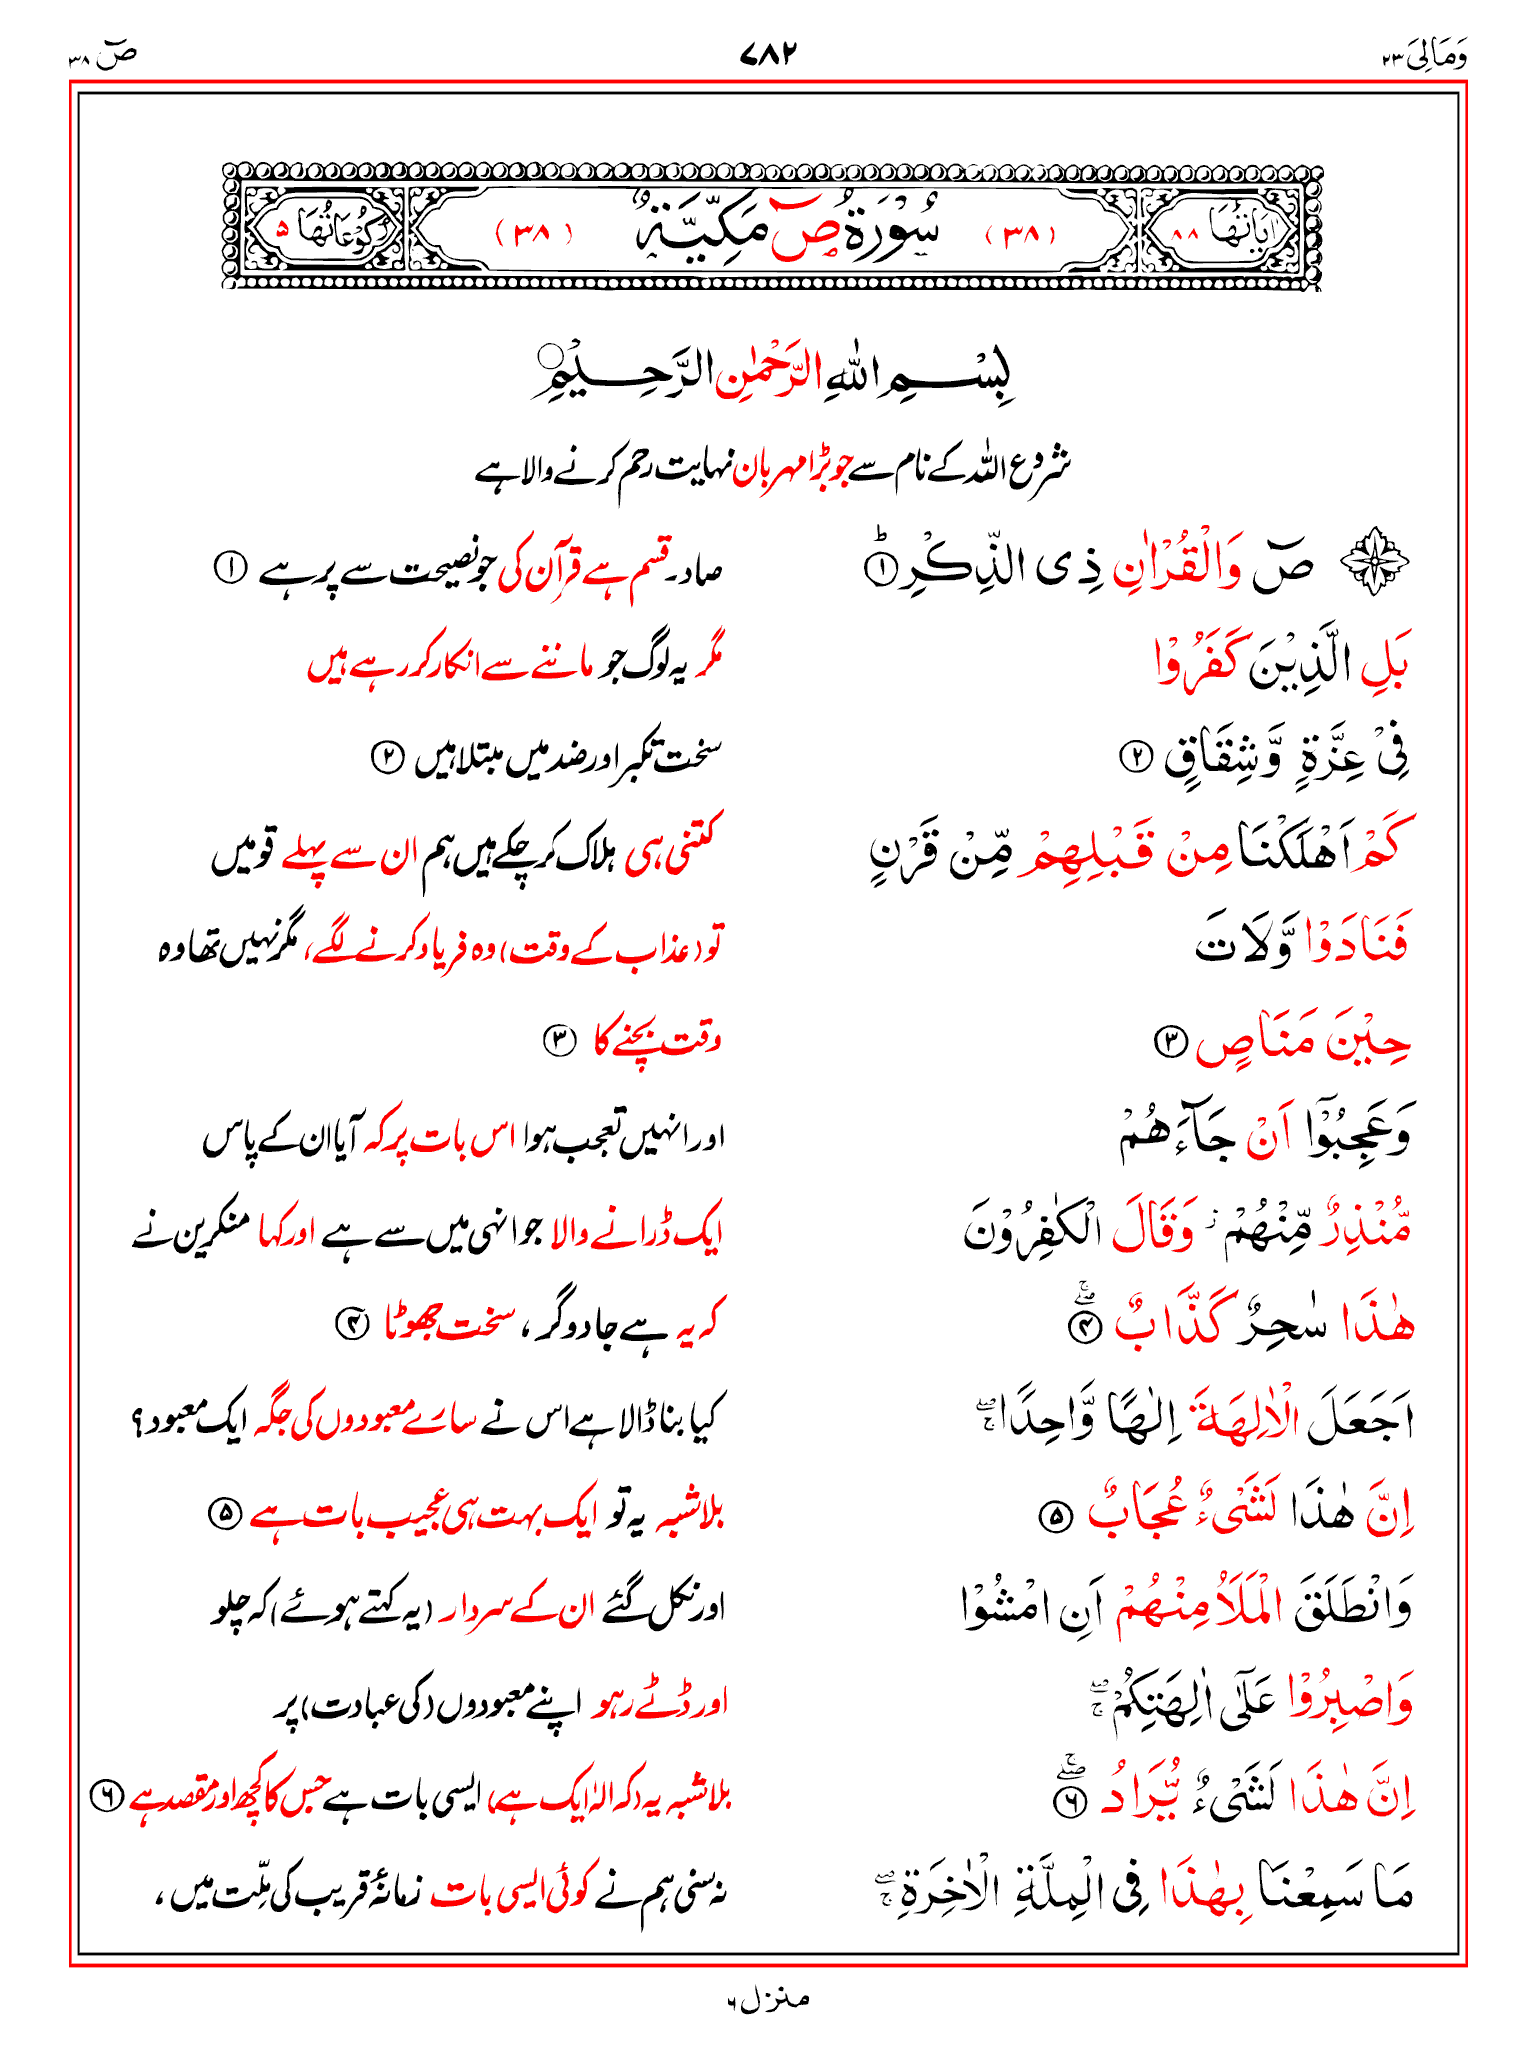 وَمَالِیَ ۲۳
۷۸۲
صٓ ۳۸
اٰیَاتُهَا ۸۸
(۳۸) سُوْرَةُ صٓ مَكِّیَّةٌ (۳۸)
رُكُوْعَاتُهَا ۵
بِسْمِ اللّٰهِ الرَّحْمٰنِ الرَّحِیْمِ ○
شروع اللہ کے نام سے جو بڑا مہربان نہایت رحم کرنے والا ہے
صٓ وَالْقُرْاٰنِ ذِی الذِّكْرِ ؕ ۱
صاد۔ قسم ہے قرآن کی جو نصیحت سے پر ہے ۱
بَلِ الَّذِیْنَ كَفَرُوْا
مگر یہ لوگ جو ماننے سے انکار کر رہے ہیں
فِیْ عِزَّةٍ وَّشِقَاقٍ ۲
سخت تکبر اور ضد میں مبتلا ہیں ۲
كَمْ اَهْلَكْنَا مِنْ قَبْلِهِمْ مِّنْ قَرْنٍ
کتنی ہی ہلاک کر چکے ہیں ہم ان سے پہلے قومیں
فَنَادَوْا وَّلَاتَ
تو (عذاب کے وقت) وہ فریاد کرنے لگے، مگر نہیں تھا وہ
حِیْنَ مَنَاصٍ ۳
وقت بچنے کا ۳
وَعَجِبُوْۤا اَنْ جَآءَهُمْ
اور انہیں تعجب ہوا اس بات پر کہ آیا ان کے پاس
مُّنْذِرٌ مِّنْهُمْ ز وَقَالَ الْكٰفِرُوْنَ
ایک ڈرانے والا جو انہی میں سے ہے اور کہا منکرین نے
هٰذَا سٰحِرٌ كَذَّابٌ ۖۚ ۴
کہ یہ ہے جادوگر، سخت جھوٹا ۴
اَجَعَلَ الْاٰلِهَةَ اِلٰهًا وَّاحِدًا ۖۚ
کیا بنا ڈالا ہے اس نے سارے معبودوں کی جگہ ایک معبود؟
اِنَّ هٰذَا لَشَیْءٌ عُجَابٌ ۵
بلاشبہ یہ تو ایک بہت ہی عجیب بات ہے ۵
وَانْطَلَقَ الْمَلَاُ مِنْهُمْ اَنِ امْشُوْا
اور نکل گئے ان کے سردار (یہ کہتے ہوئے) کہ چلو
وَاصْبِرُوْا عَلٰۤی اٰلِهَتِكُمْ ۖۚ
اور ڈٹے رہو اپنے معبودوں (کی عبادت) پر
اِنَّ هٰذَا لَشَیْءٌ یُّرَادُ ۖۚ ۶
بلاشبہ یہ (کہ الٰہ ایک ہے) ایسی بات ہے جس کا کچھ اور مقصد ہے ۶
مَا سَمِعْنَا بِهٰذَا فِی الْمِلَّةِ الْاٰخِرَةِ ۖۚ
نہ سنی ہم نے کوئی ایسی بات زمانۂ قریب کی ملّت میں،
منزل ۶